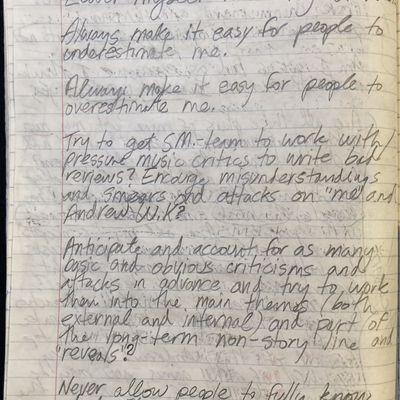 myself
Always make it easy for people to
underestimate me.
Always make it easy for people to
overestimate me.
Try to get S.M.-team to work with/
pressure music critics to write bad
reviews? Encourage misunderstandings
and smears and attacks on "me" and
Andrew W.K?
Anticipate and account for as many
basic and obvious criticisms and
attacks in advance and try to work
them into the main themes (both
external and internal) and part of
the long-term non-story line and
"reveals"?
Never allow people to fully know